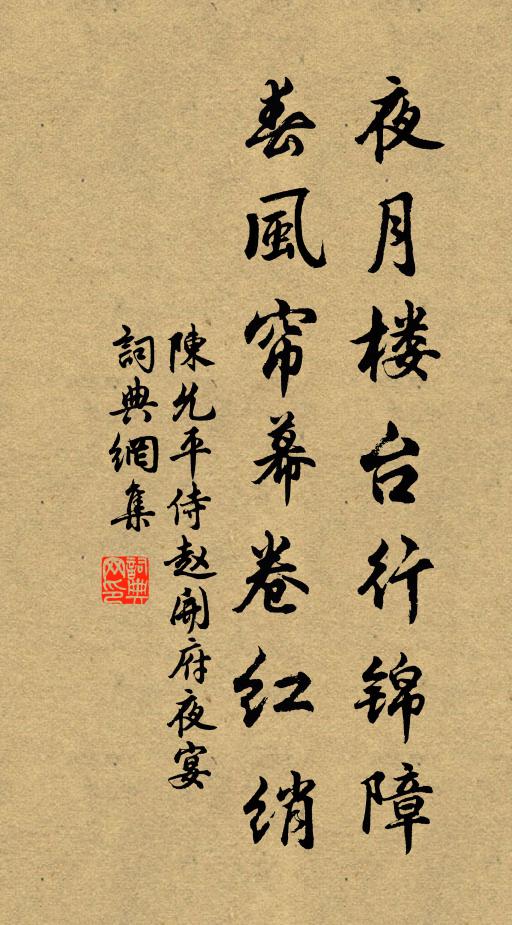 夜月楼台行锦障
春風帘幕卷红绡
陳允平侍赵開府夜宴
詞典網集
詞典网印